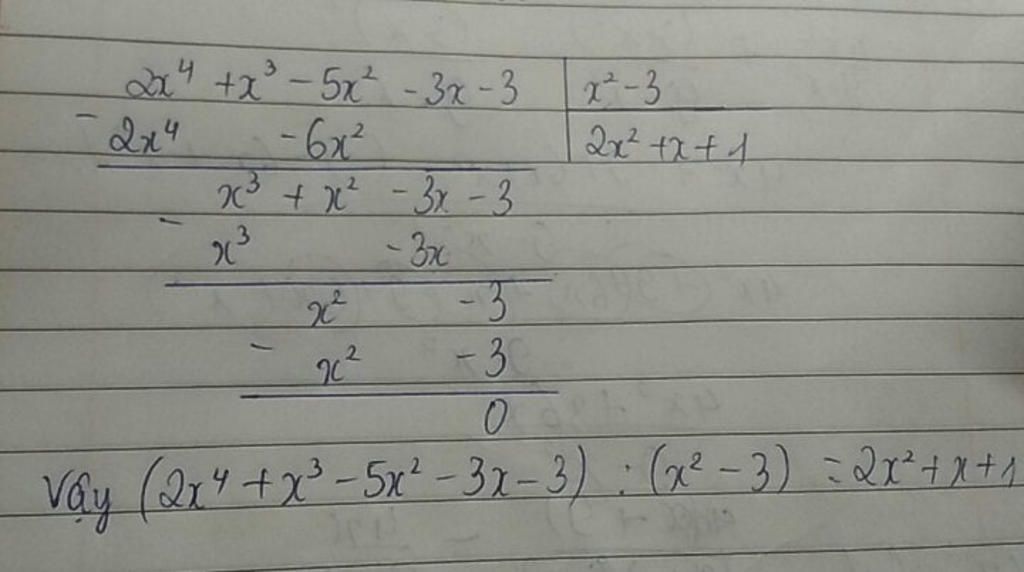 2x⁴ + x³ - 5x² - 3x - 3 | x² - 3
- 2x⁴ - 6x² | 2x² + x + 1
x³ + x² - 3x - 3
- x³ - 3x
x² - 3
- x² - 3
0
Vậy (2x⁴ + x³ - 5x² - 3x - 3) : (x² - 3) = 2x² + x + 1